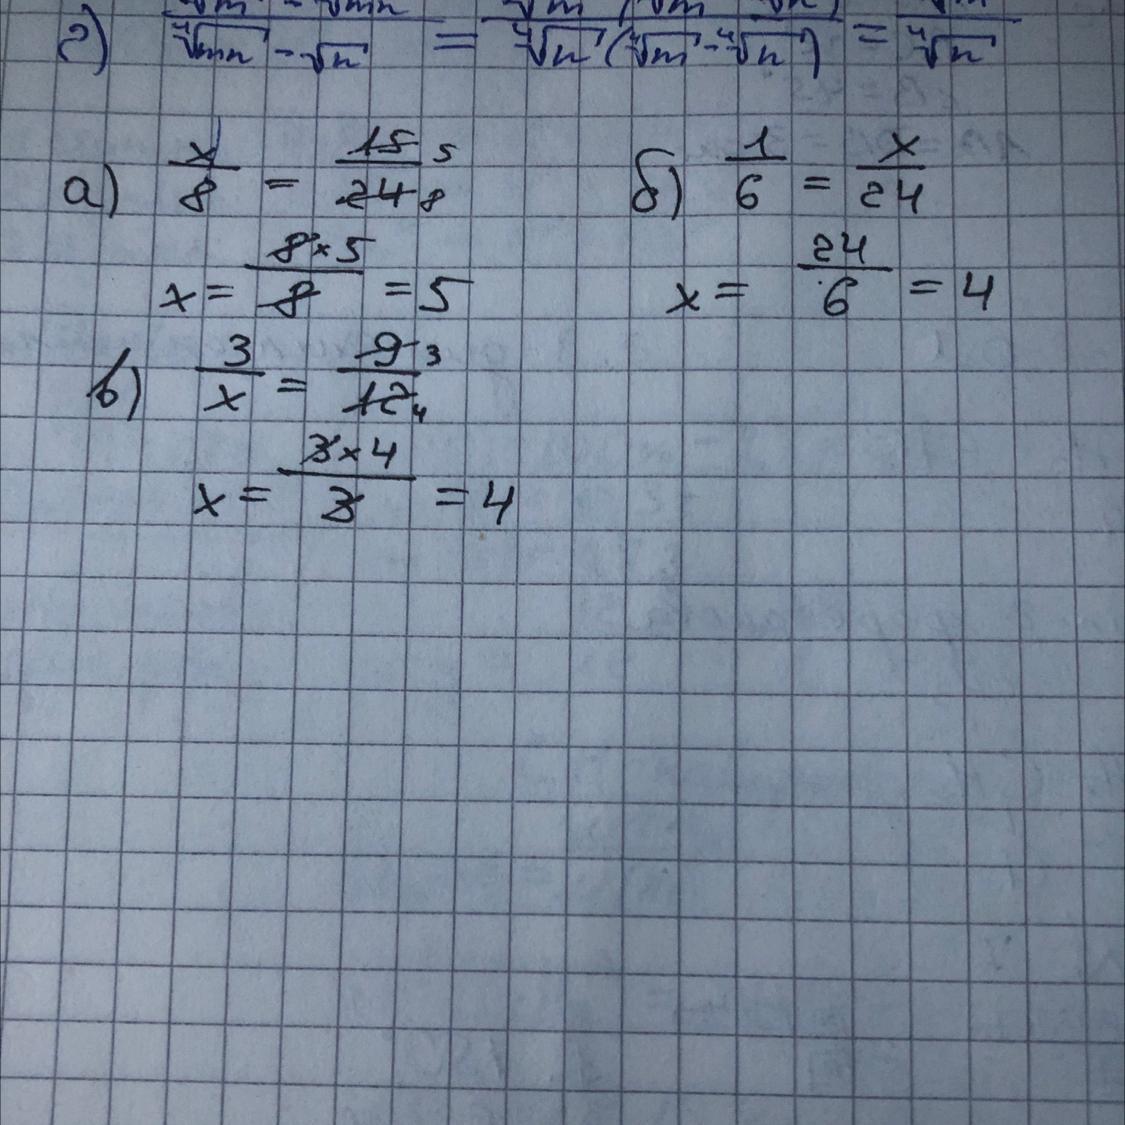 г) ⁴√mn - √n = ⁴√n (⁴√m - ⁴√n) = ⁴√n
а) x/8 = 15/24 5 8
x = 8×5/8 = 5
б) 1/6 = x/24
x = 24/6 = 4
в) 3/x = 9/12 3 4
x = 3×4/3 = 4